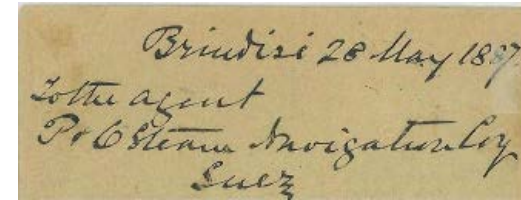 Brindisi 28 May 1887
To the agent
P & O Steam Navigation Coy
Suez